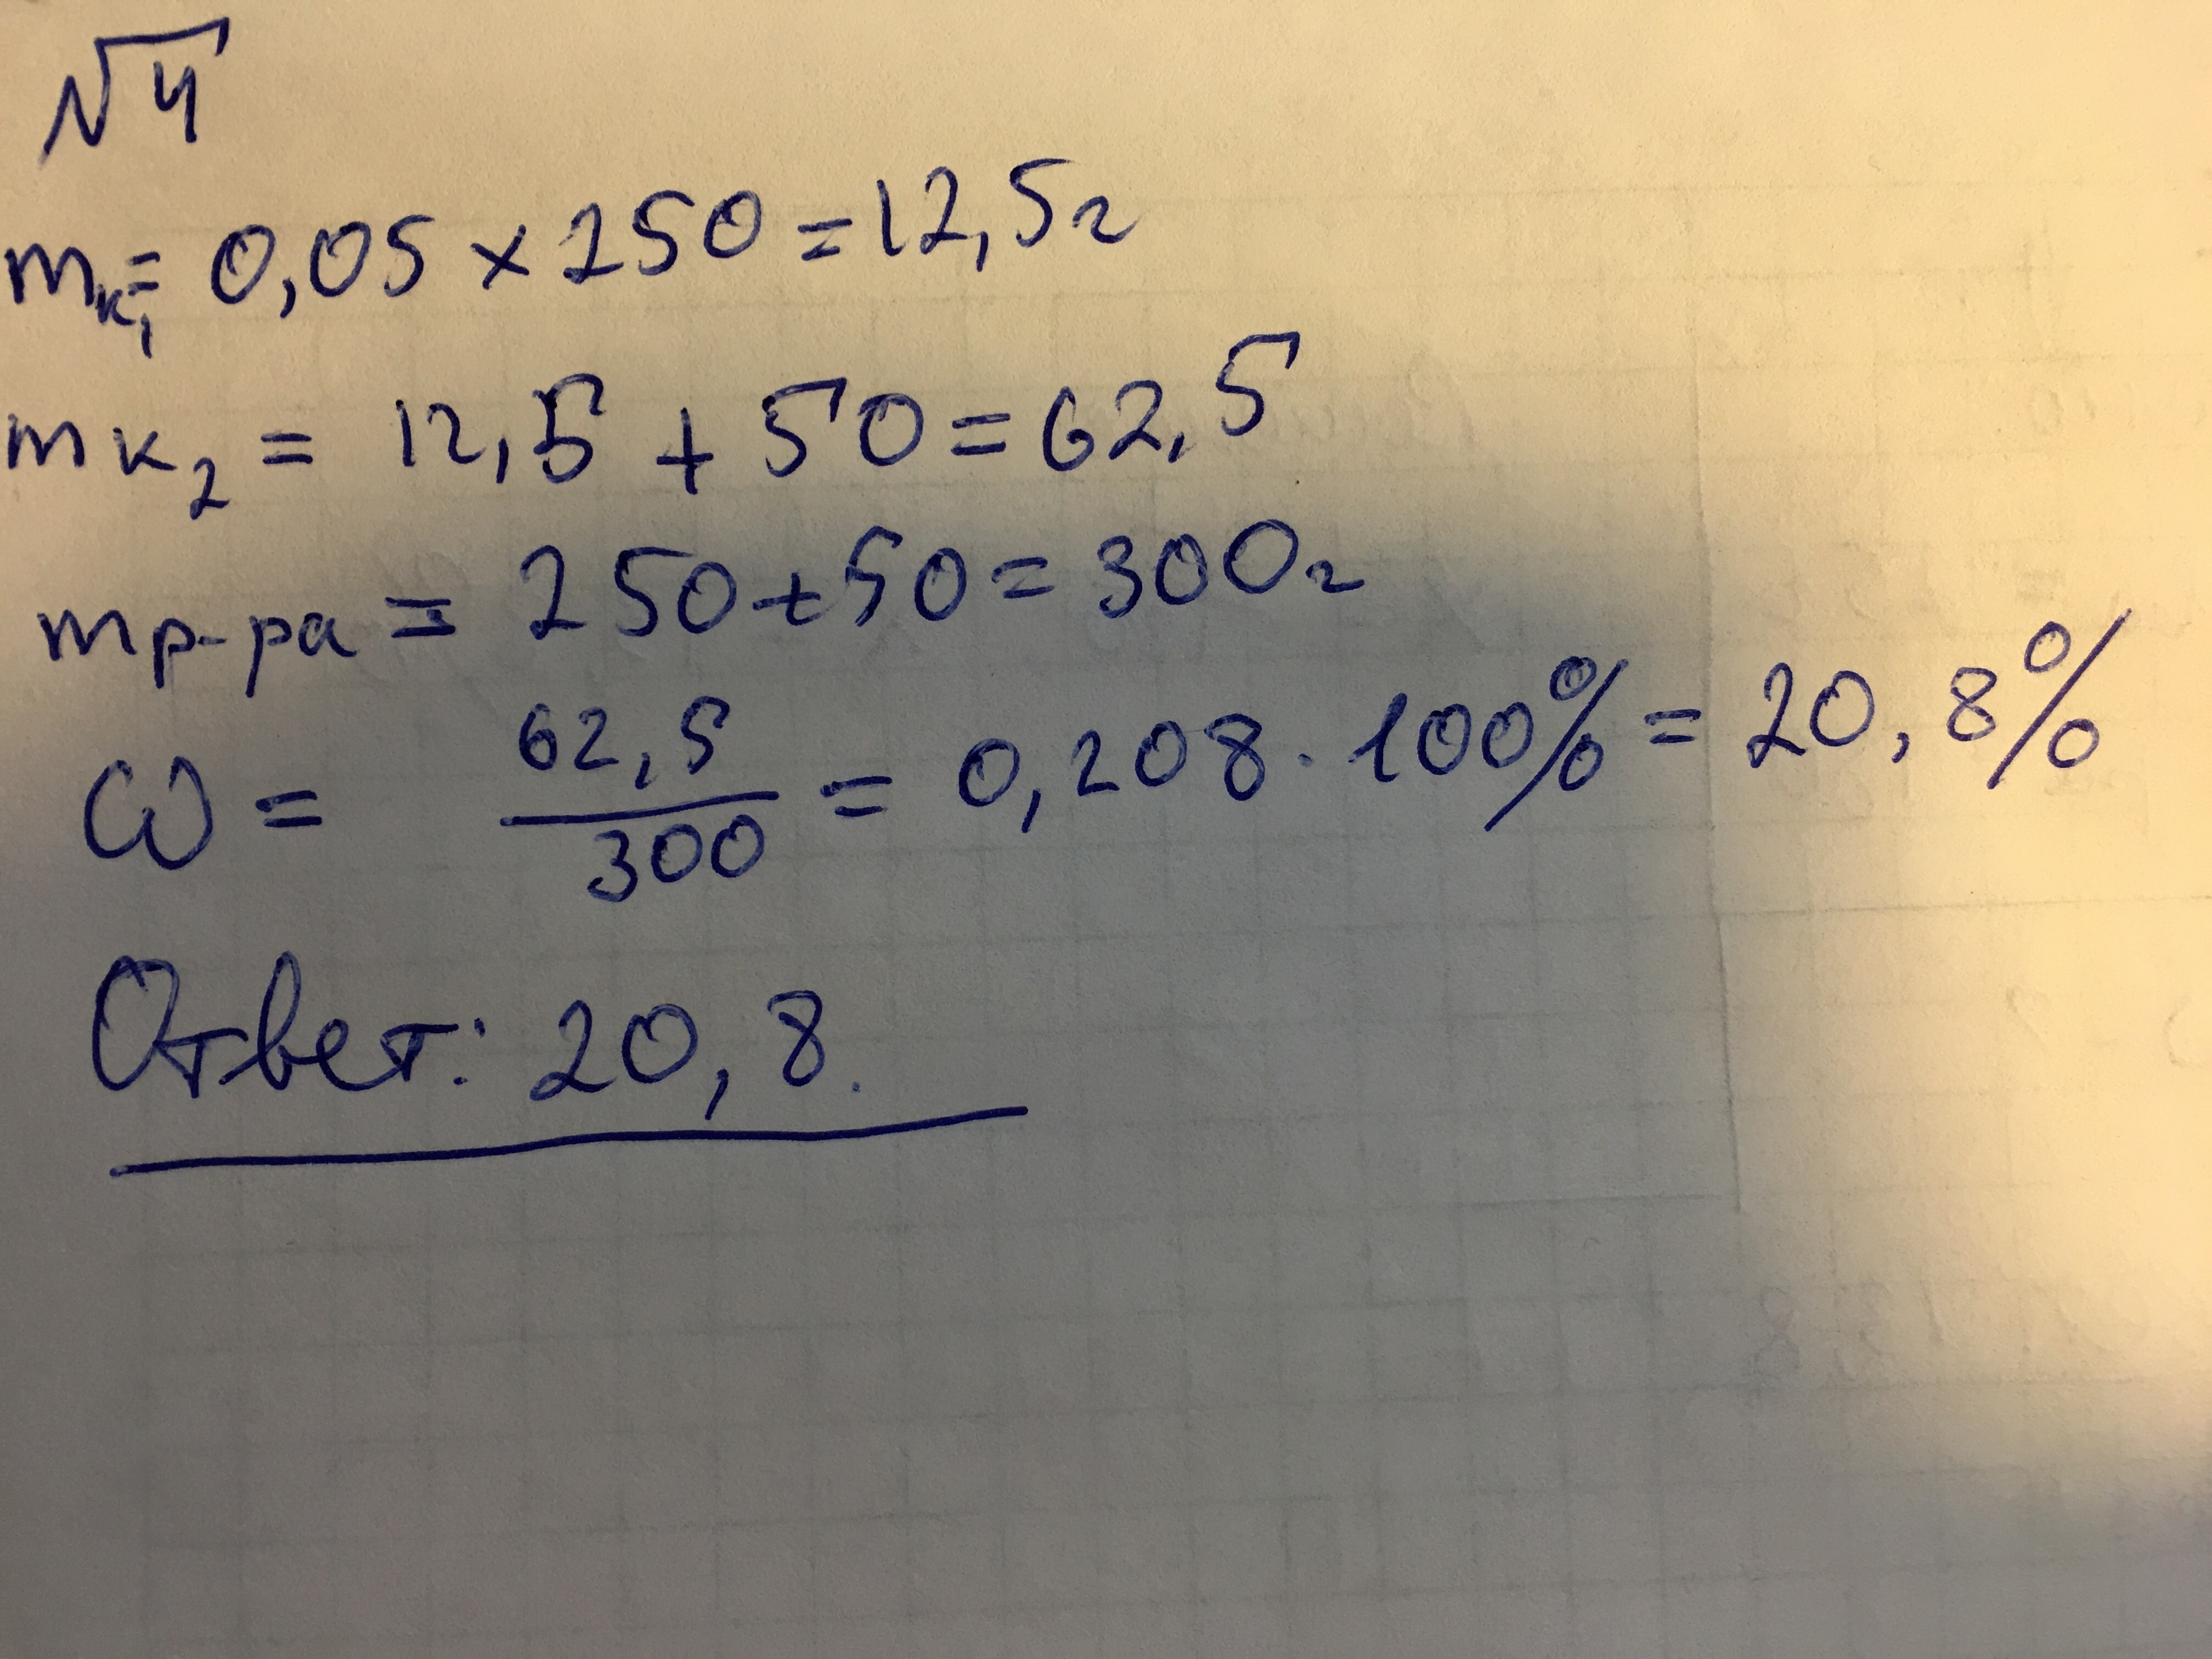 √4
mк₁ = 0,05 × 250 = 12,5г
mк₂ = 12,5 + 50 = 62,5
mр-ра = 250 + 50 = 300г
ω = 62,5/300 = 0,208 · 100% = 20,8%
Ответ: 20,8.